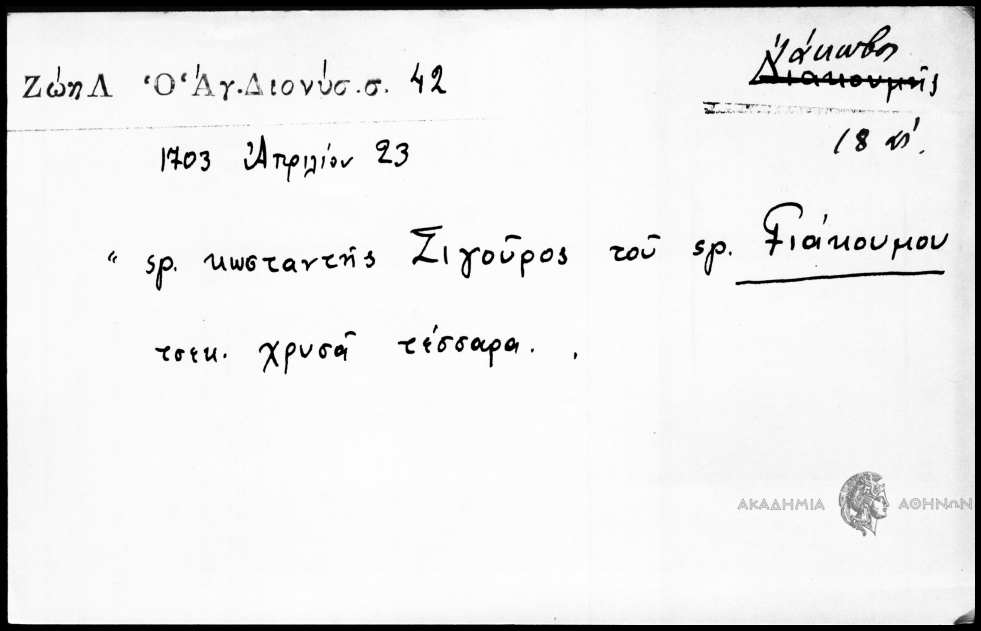 Ζώη Λ Ὁ Ἅγ. Διονύσ. σ. 42
Ἰάκωβος
Διακουμῆς
18 αἰ.
1703 Ἀπριλίου 23
“ ςρ. κωσταντῆς Σιγοῦρος τοῦ ςρ. Γιάκουμου
τσεκ. χρυσᾶ τέσσαρα. .
ΑΚΑΔΗΜΙΑ ΑΘΗΝΩΝ